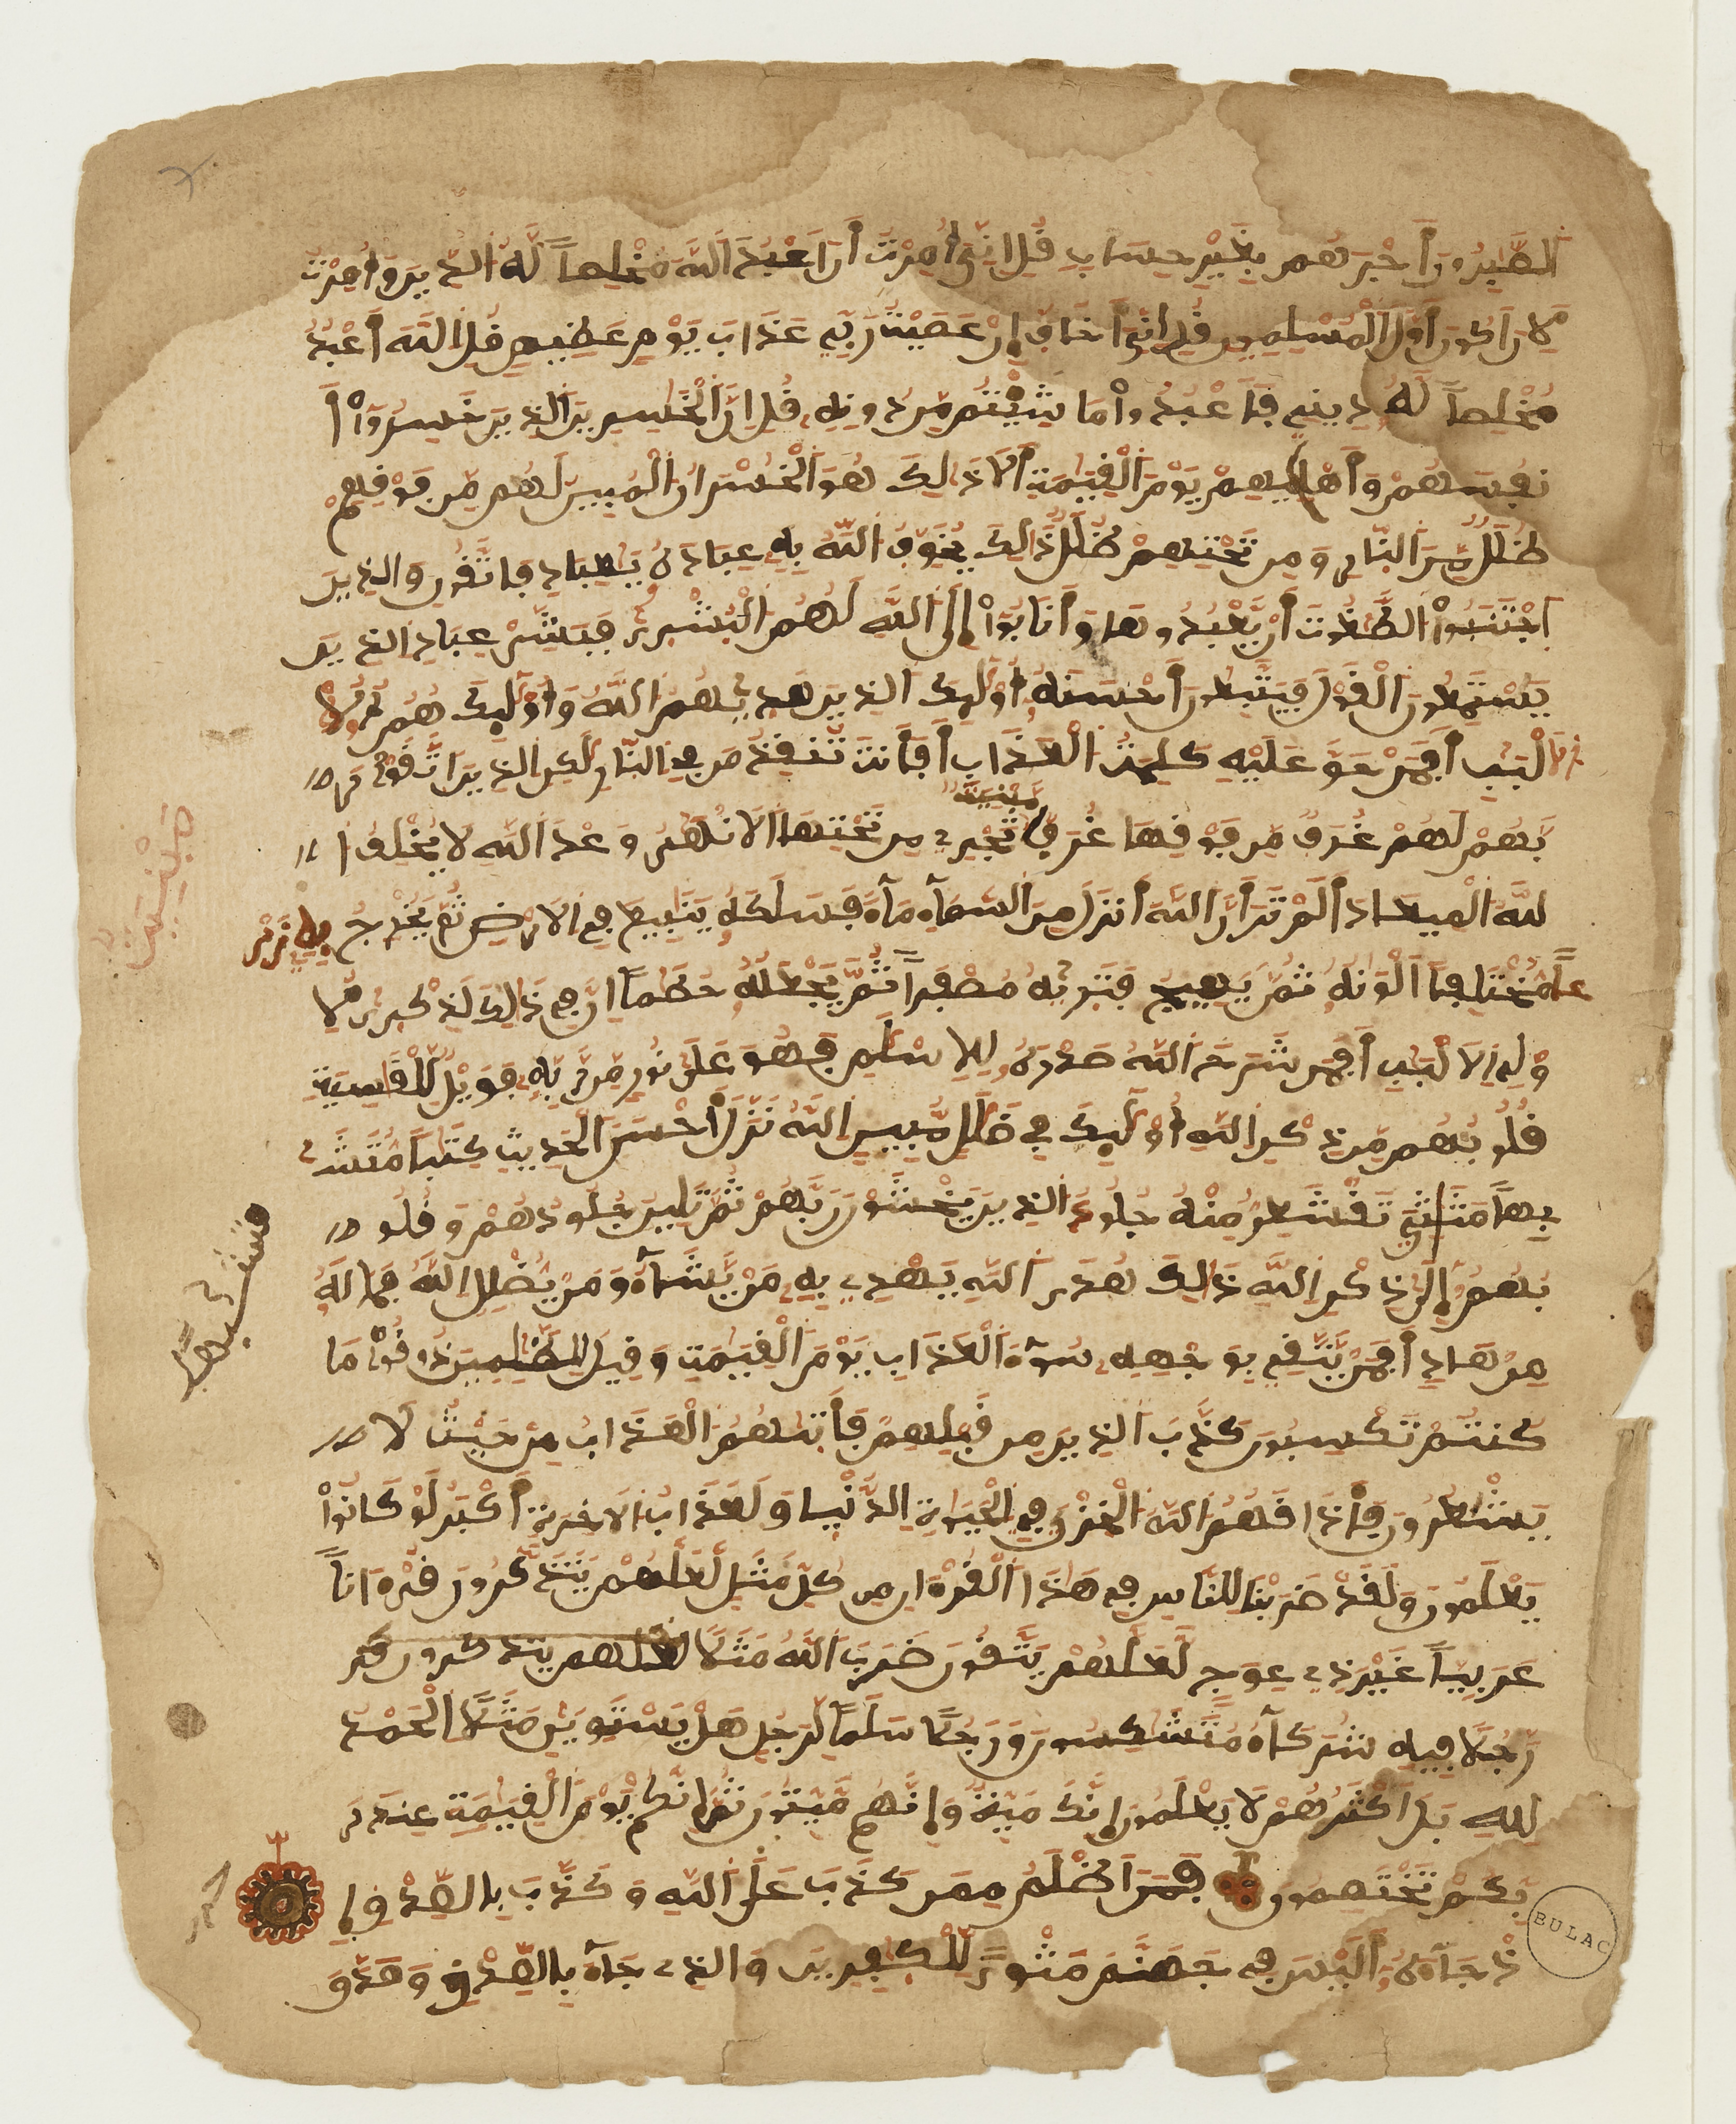 الصبرون أجرهم بغير حساب قل إني أمرت أن أعبد الله مخلصا له الدين وأمرت
لأن أكون أول المسلمين قل إني أخاف إن عصيت ربي عذاب يوم عظيم قل الله أعبد
مخلصا له ديني فاعبدوا ما شئتم من دونه قل إن الخسرين الذين خسروا أ
نفسهم وأهليهم يوم القيمة ألا ذلك هو الخسران المبين لهم من فوقهم
ظلل من النار ومن تحتهم ظلل ذلك يخوف الله به عباده يعباد فاتقون والذين
اجتنبوا الطغوت أن يعبدوها وأنابوا إلى الله لهم البشرى فبشر عباد الذين
يستمعون القول فيتبعون أحسنه أوليك الذين هديهم الله وأوليك هم أولوا
البب أفمن حق عليه كلمت العذاب أفأنت تنقذ من في النار لكن الذين اتقوا ر
بهم لهم غرف من فوقها غرف تجري من تحتها الانهر وعد الله لا يخلف ا
مبنية
لله الميعاد ألم تر أن الله أنزل من السماء ماء فسلكه ينبيع في الارض ثم يخرج به زر
عا مختلفا ألونه ثم يهيج فتريه مصفرا ثم يجعله حطما إن في ذلك لذكرى لا
ولي الالبب أفمن شرح الله صدره للاسلم فهو على نور من ربه فويل للقسية
قلوبهم من ذكر الله أوليك في ضلل مبين الله نزل أحسن الحديث كتبا متش
بها مثني تقشعر منه جلود الذين يخشون ربهم ثم تلين جلودهم وقلو
بهم إلى ذكر الله ذلك هدى الله يهدي به من يشاء ومن يضلل الله فما له
من هاد أفمن يتقي بوجهه سوء العذاب يوم القيمة وقيل للظلمين ذوقوا ما
كنتم تكسبون كذب الذين من قبلهم فأتيهم العذاب من حيث لا
يشعرون فأذاقهم الله الخزي في الحيوة الدنيا ولعذاب الاخرة أكبر لو كانوا
يعلمون ولقد ضربنا للناس في هذا القرءان من كل مثل لعلهم يتذكرون قرءانا
عربيا غير ذي عوج لعلهم يتقون ضرب الله مثلا لعلهم يتذكرون قر
رجلا فيه شركاء متشكسون ورجلا سلما لرجل هل يستوين مثلا الحمد
لله بل أكثرهم لا يعلمون إنك ميت وإنهم ميتون ثم إنكم يوم القيمة عند ر
بكم تختصمون فمن أظلم ممن كذب على الله وكذب بالصدق إ
ذ جاءه أليس في جهنم مثوى للكفرين والذي جاء بالصدق وصدق
مبنية
متشبها
حزب
BULAC